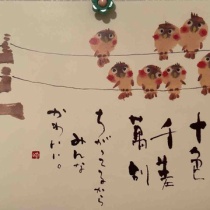 十色
千差
萬別
ちがってるから
みんな
かわいい。